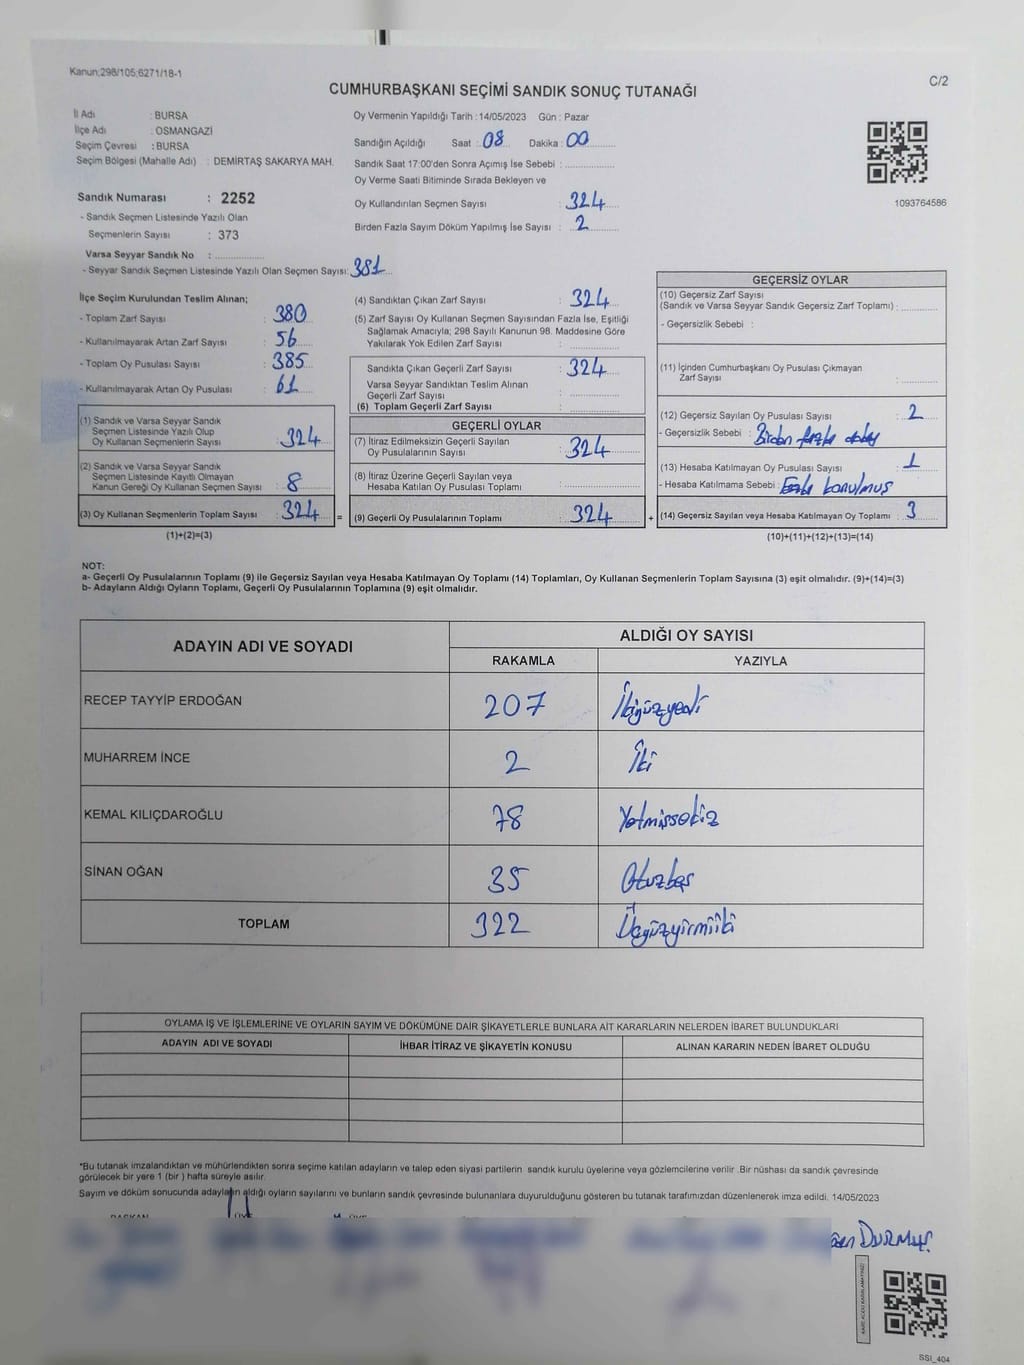 Kanun;298/105;6271/18-1
C/2
CUMHURBAŞKANI SEÇİMİ SANDIK SONUÇ TUTANAĞI
İl Adı : BURSA
İlçe Adı : OSMANGAZİ
Seçim Çevresi : BURSA
Seçim Bölgesi (Mahalle Adı) : DEMİRTAŞ SAKARYA MAH.
Sandık Numarası : 2252
- Sandık Seçmen Listesinde Yazılı Olan
Seçmenlerin Sayısı : 373
Varsa Seyyar Sandık No :
- Seyyar Sandık Seçmen Listesinde Yazılı Olan Seçmen Sayısı: 381
Oy Vermenin Yapıldığı Tarih :14/05/2023 Gün : Pazar
Sandığın Açıldığı Saat : 08 Dakika : 00
Sandık Saat 17:00'den Sonra Açımış İse Sebebi :
Oy Verme Saati Bitiminde Sırada Bekleyen ve
Oy Kullandırılan Seçmen Sayısı : 324
Birden Fazla Sayım Döküm Yapılmış İse Sayısı : 2
1093764586
İlçe Seçim Kurulundan Teslim Alınan;
- Toplam Zarf Sayısı : 380
- Kullanılmayarak Artan Zarf Sayısı : 56
- Toplam Oy Pusulası Sayısı : 385
- Kullanılmayarak Artan Oy Pusulası : 61
(1) Sandık ve Varsa Seyyar Sandık
Seçmen Listesinde Yazılı Olup
Oy Kullanan Seçmenlerin Sayısı : 324
(2) Sandık ve Varsa Seyyar Sandık
Seçmen Listesinde Kayıtlı Olmayan
Kanun Gereği Oy Kullanan Seçmen Sayısı : 8
(3) Oy Kullanan Seçmenlerin Toplam Sayısı : 324
(1)+(2)=(3)
(4) Sandıktan Çıkan Zarf Sayısı : 324
(5) Zarf Sayısı Oy Kullanan Seçmen Sayısından Fazla İse, Eşitliği
Sağlamak Amacıyla; 298 Sayılı Kanunun 98. Maddesine Göre
Yakılarak Yok Edilen Zarf Sayısı :
Sandıkta Çıkan Geçerli Zarf Sayısı : 324
Varsa Seyyar Sandıktan Teslim Alınan
Geçerli Zarf Sayısı :
(6) Toplam Geçerli Zarf Sayısı :
GEÇERLİ OYLAR
(7) İtiraz Edilmeksizin Geçerli Sayılan
Oy Pusulalarının Sayısı : 324
(8) İtiraz Üzerine Geçerli Sayılan veya
Hesaba Katılan Oy Pusulası Toplamı :
= (9) Geçerli Oy Pusulalarının Toplamı : 324 +
GEÇERSİZ OYLAR
(10) Geçersiz Zarf Sayısı
(Sandık ve Varsa Seyyar Sandık Geçersiz Zarf Toplamı) :
- Geçersizlik Sebebi :
(11) İçinden Cumhurbaşkanı Oy Pusulası Çıkmayan
Zarf Sayısı :
(12) Geçersiz Sayılan Oy Pusulası Sayısı : 2
- Geçersizlik Sebebi : Birden fazla
(13) Hesaba Katılmayan Oy Pusulası Sayısı : 1
- Hesaba Katılmama Sebebi : konulmuş
(14) Geçersiz Sayılan veya Hesaba Katılmayan Oy Toplamı : 3
(10)+(11)+(12)+(13)=(14)
NOT:
a- Geçerli Oy Pusulalarının Toplamı (9) ile Geçersiz Sayılan veya Hesaba Katılmayan Oy Toplamı (14) Toplamları, Oy Kullanan Seçmenlerin Toplam Sayısına (3) eşit olmalıdır. (9)+(14)=(3)
b- Adayların Aldığı Oyların Toplamı, Geçerli Oy Pusulalarının Toplamına (9) eşit olmalıdır.
ADAYIN ADI VE SOYADI ALDIĞI OY SAYISI
RAKAMLA YAZIYLA
RECEP TAYYİP ERDOĞAN 207 İkiyüzyedi
MUHARREM İNCE 2 İki
KEMAL KILIÇDAROĞLU 78 Yetmişsekiz
SİNAN OĞAN 35 Otuzbeş
TOPLAM 322 Üçyüzyirmiiki
OYLAMA İŞ VE İŞLEMLERİNE VE OYLARIN SAYIM VE DÖKÜMÜNE DAİR ŞİKAYETLERLE BUNLARA AİT KARARLARIN NELERDEN İBARET BULUNDUKLARI
ADAYIN ADI VE SOYADI İHBAR İTİRAZ VE ŞİKAYETİN KONUSU ALINAN KARARIN NEDEN İBARET OLDUĞU
*Bu tutanak imzalandıktan ve mühürlendikten sonra seçime katılan adayların ve talep eden siyasi partilerin sandık kurulu üyelerine veya gözlemcilerine verilir .Bir nüshası da sandık çevresinde
görülecek bir yere 1 (bir ) hafta süreyle asılır.
Sayım ve döküm sonucunda adayların aldığı oyların sayılarını ve bunların sandık çevresinde bulunanlara duyurulduğunu gösteren bu tutanak tarafımızdan düzenlenerek imza edildi. 14/05/2023
BAŞKAN ÜYE ÜYE
DURMUŞ
SSI_404